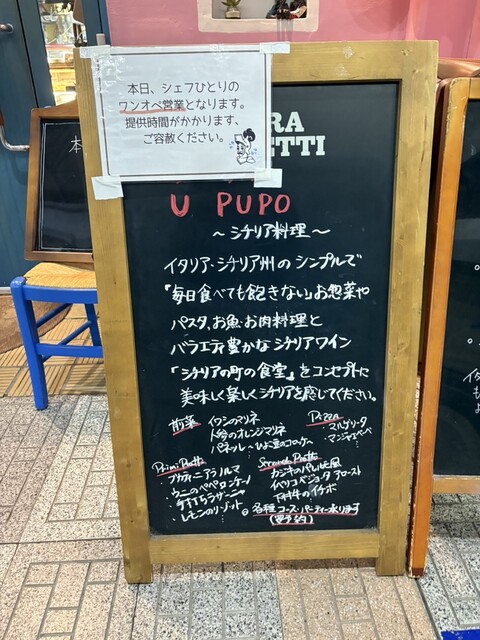 本日、シェフひとりの
ワンオペ営業となります。
提供時間がかかります、
ご容赦ください。
RA
ETTI
U PUPO
～シチリア料理～
イタリア・シチリア州のシンプルで
「毎日食べても飽きない」お惣菜や
パスタ、お魚・お肉料理と
バラエティ豊かなシチリアワイン
「シチリアの町の食堂」をコンセプトに
美味しく楽しくシチリアを感じてください。
前菜
・イワシのマリネ
・人参のオレンジマリネ
・パネッレ・ひよこ豆のコロッケ〜
Pizza
・マルゲリータ
・マンジャエベーベ
Primi Piatti
・ブカティーニ アラ ノルマ
・ウニのペペロンチーノ
・手打ちラザーニャ
・レモンのリゾット
Secondi Piatti
・カジキのパレルモ風
・イベリコ アロースト
◎各種コース・パーティー承ります
(要予約)
本